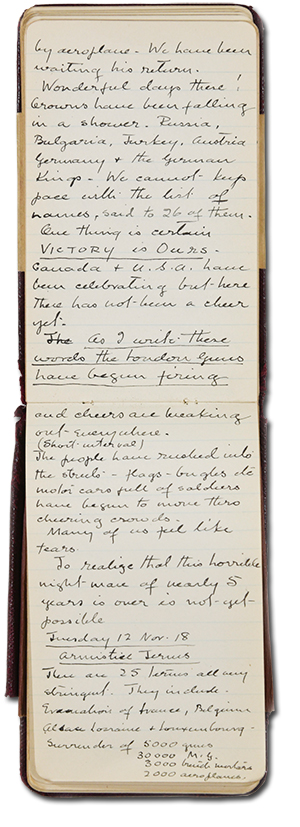 by aeroplane. We have been
waiting his return.
Wonderful days these!
Crowns have been falling
in a shower. Russia,
Bulgaria, Turkey, Austria
Germany & the German
Kings. We cannot keep
pace with the list of
names, said to 26 of them.
One thing is certain
VICTORY is OURS.
Canada & U.S.A. have
been celebrating but here
there has not been a cheer
yet.
The As I write these
words the London Guns
have begun firing
and cheers are breaking
out everywhere.
(Short interval)
The people have rushed into
the streets - flags - bugles etc
motor cars full of soldiers
have begun to move thro
cheering crowds.
Many of us feel like
tears
To realize that this horrible
night-mare of nearly 5
years is over is not yet
possible
Tuesday 12 Nov. 18
Armistice Terms
There are 25 terms all very
stringent. They include.
Evacuation of France, Belgium
Alsace Lorraine & Luxembourg.
Surrender of 5000 guns
30000 M.G.
3000 trench mortars
2000 aeroplanes.